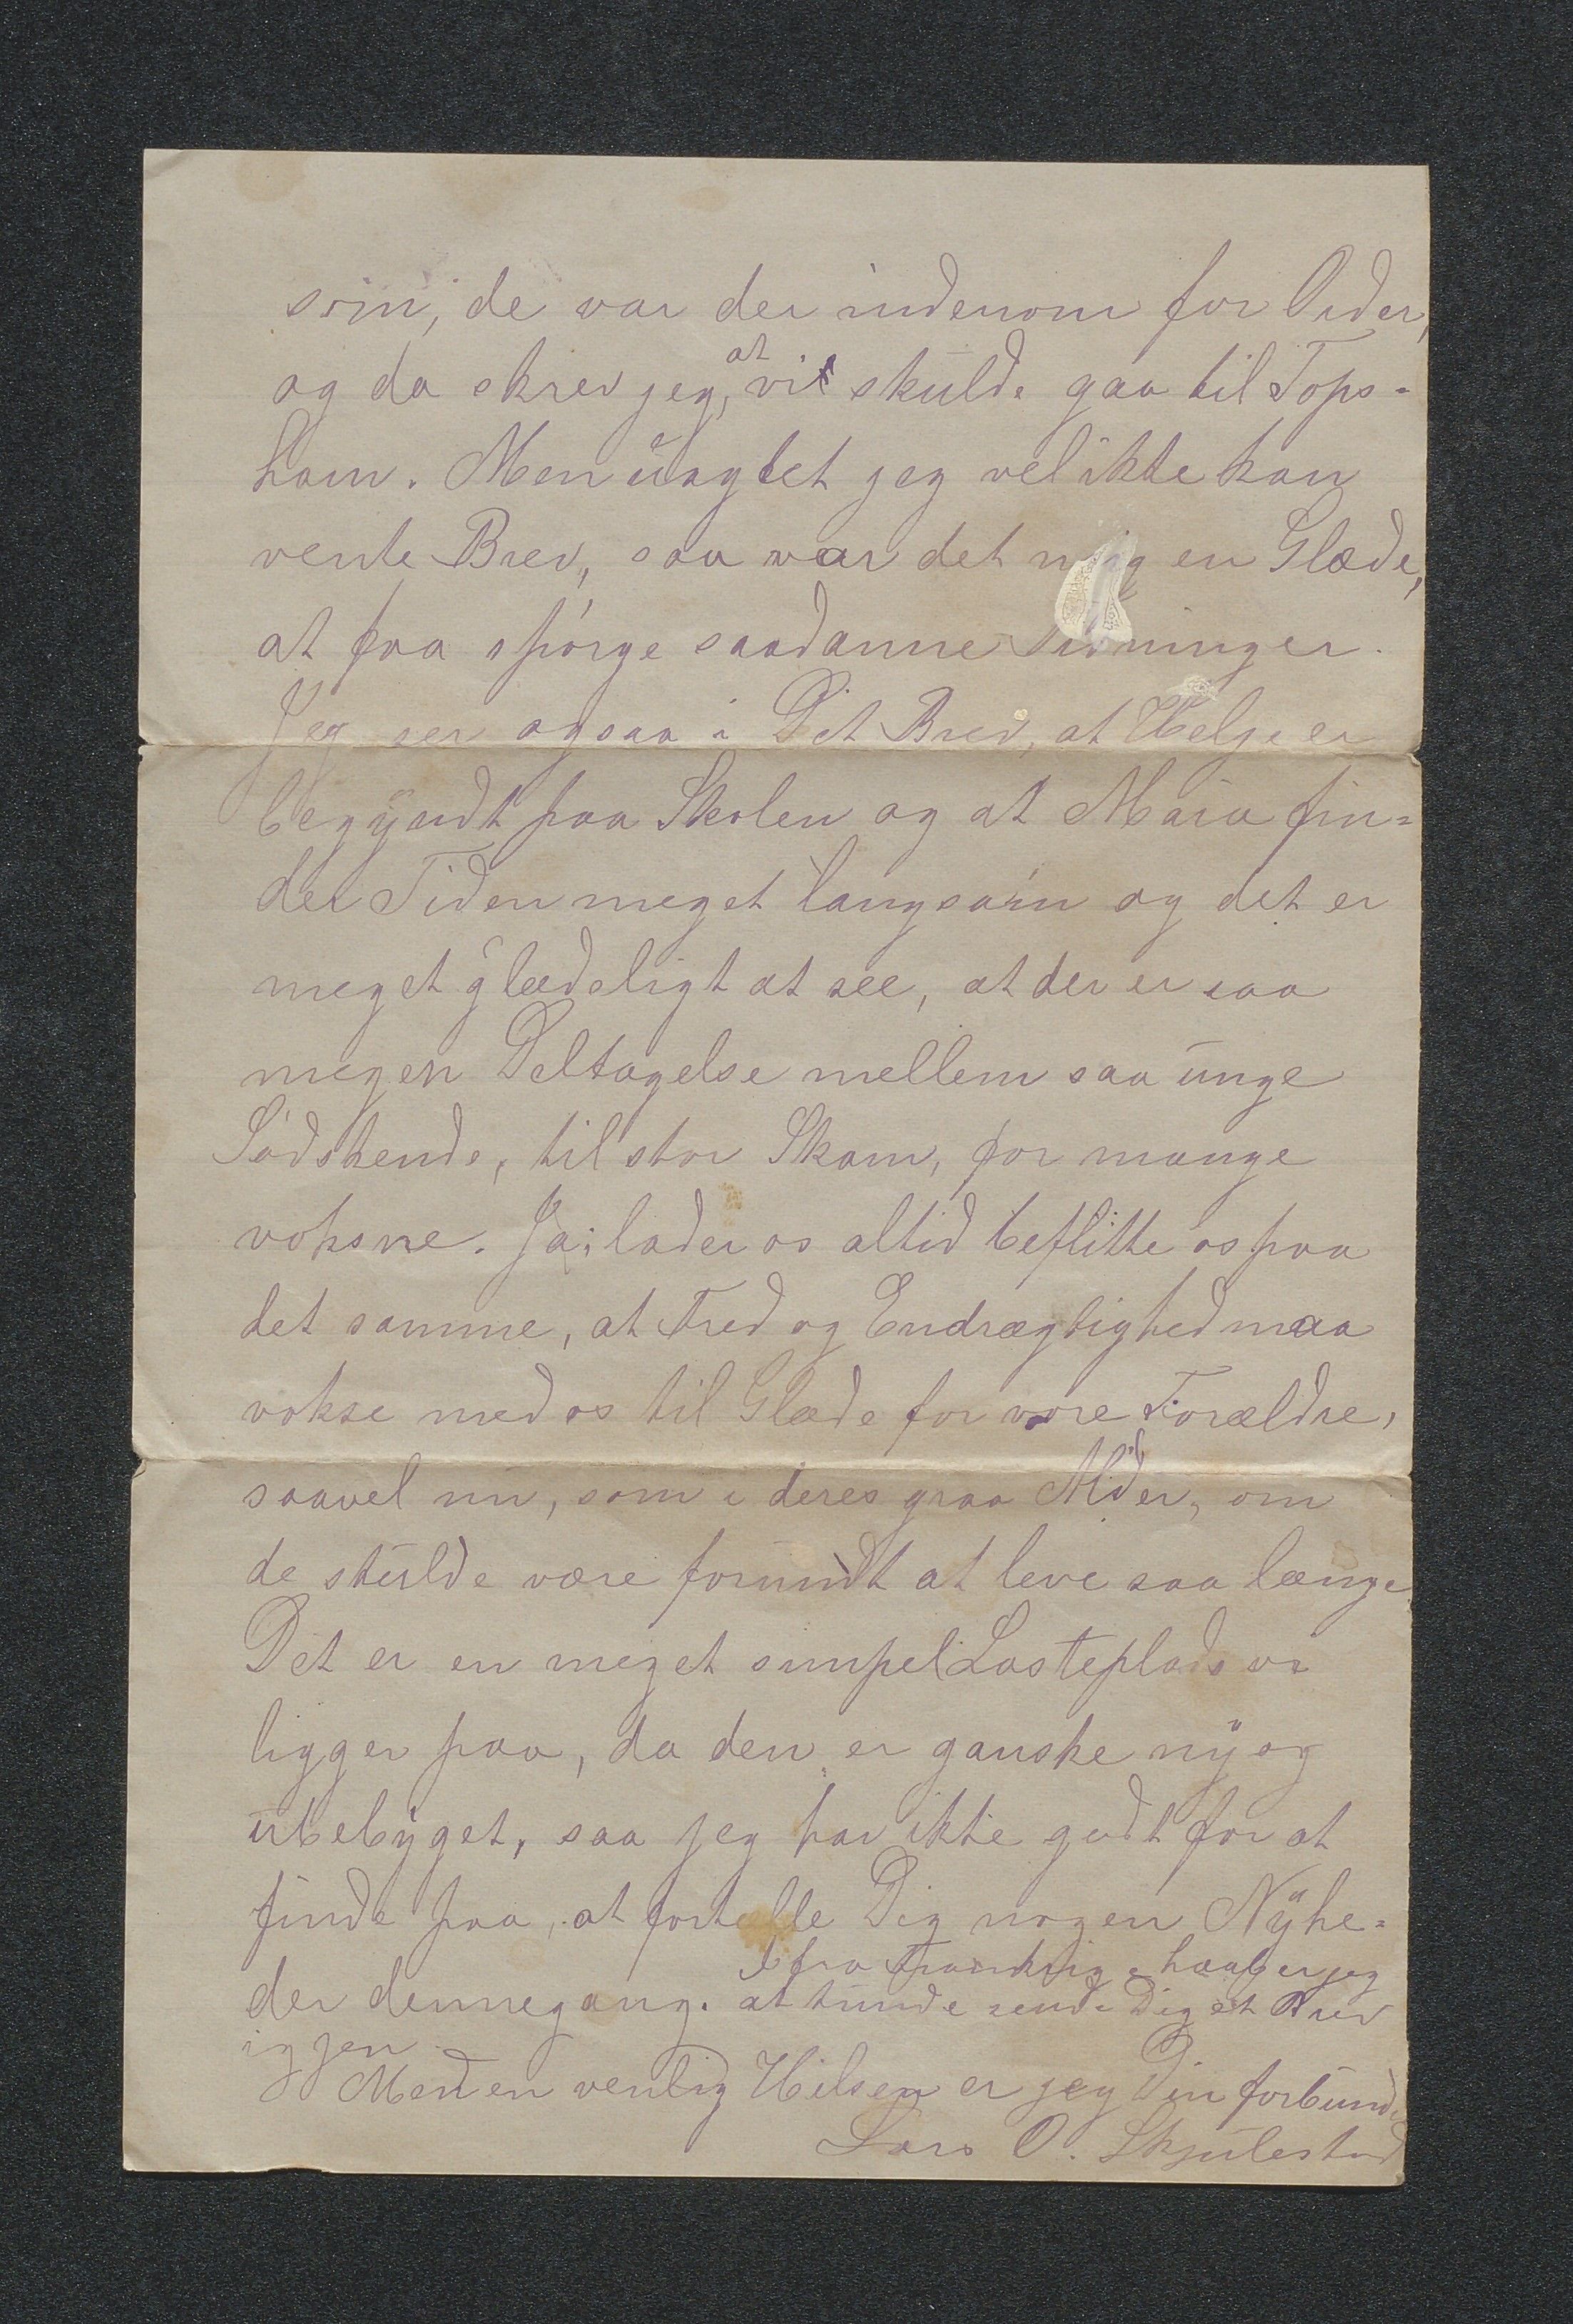 som, de var der indenom for Order,
og da skrev jeg, at vi skulde gaa til Tops-
ham. Men uagtet jeg vel ikke kan
vente Brev, saa var det mig en Glæde,
at faa spørge saadanne Tidninger.
Jeg ser ogsaa i Dit Brev, at Helje er
begyndt paa Skolen og at Maia fin-
der Tiden meget langsom og det er
meget glædeligt at see, at der er saa
megen Deltagelse mellem saa unge
Sødskende, til stor Skam, for mange
voksne. Ja; lader os altid beflitte os paa
det samme, at Fred og Endrægtighed maa
vokse med os til Glæde for vore Forældre,
saavel nu, som i deres graa Alder, om
de skulde være forundt at leve saa længe.
Det er en meget simpel Lasteplads vi
ligger paa, da den er ganske ny og
ubebyget, saa jeg har ikke godt for at
finde paa, at fortelle Dig nogen Nyhe-
der dennegang. Ifra Frankrig haaber jeg
at kunde sende Dig et Brev
igjen
Med en venlig Hilsen er jeg Din forbundne
Lars O. Skjulestad